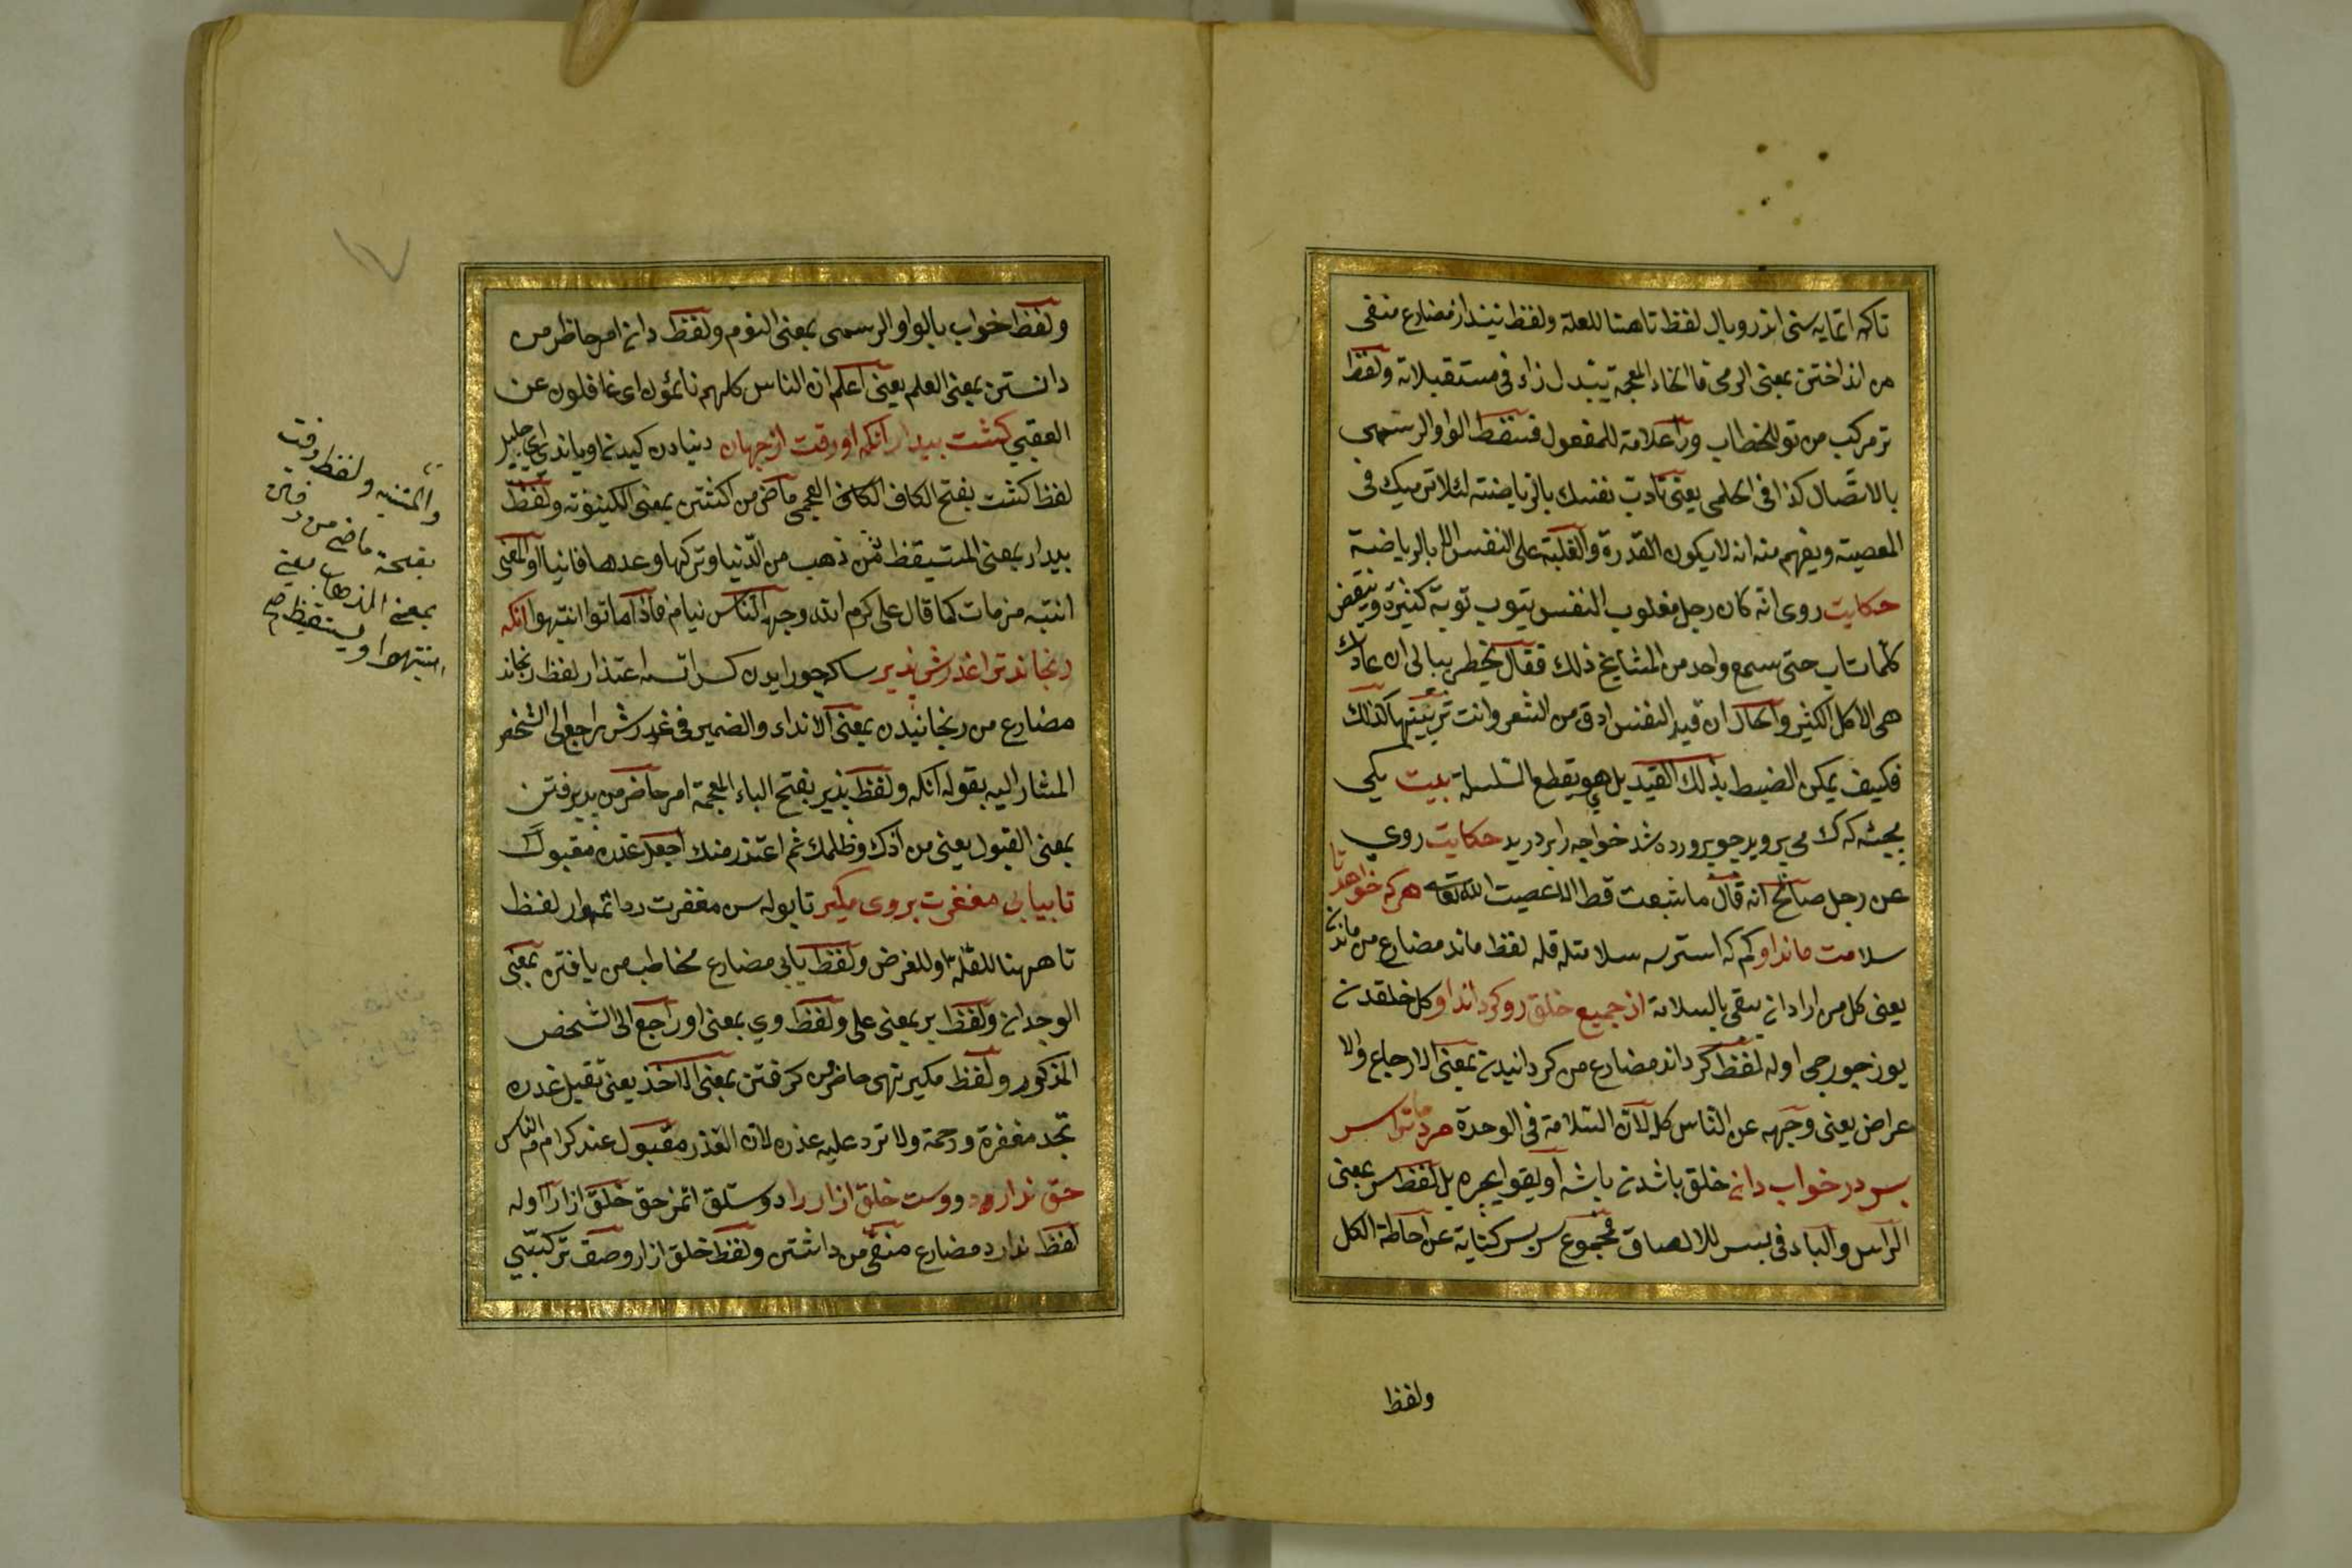 تاكه اتمايه سنى اندر وبال لفظ تا هنا للعلة ولفظ نيندازد مضارع منفى
من انداختن بمعنى الرمى فالخاء المعجمة يتبدل زاء فى مستقبلاته ولفظ
تر مركب من تو للخطاب ورا علامة للمفعول فسقط الواو الرسمى
بالاتصال كذا فى الحلمى يعنى تأدب نفسك بالرياضته لئلا ترميك فى
المعصية ويفهم منه انه لا يكون القدرة والغلبة على النفس الا بالرياضية
حكايت روى انه كان رجل مغلوب النفس يتوب توبة كثيرة وينقض
كلما تاب حتى سمع واحد من المشايخ ذلك فقال يخطر ببالى ان عادتك
هى الاكل الكثير والحال ان قيد النفس ادق من الشعر وانت تربيتها كذلك
فكيف يمكن الضبط بذلك القيد بل هو يقطع السلسلة بيت يكى
بچه كرك مى پرويد چو پرورده شد خواجه را بر دريد حكايت روى
عن رجل صالح انه قال ما شبعت قط الا عصيت الله تعالى هر كه خواهد تا
سلامت ماند او كم كه استرسه سلامتله قله لفظ ماند مضارع من ماندن
يعنى كل من اراد ان يبقى بالسلامة از جميع خلق رو كرداند او كل خلقدن
يوز چورجى اوله لفظ كرداند مضارع من كردانيدن بمعنى الارجاع والا
عراض يعنى وجهه عن الناس كل لان السلامة فى الوحدة مردمانرا سر
بسر در خواب دان خلق باشدن باشه اويقو ايچره بل لفظ سر بمعنى
الرأس والباء فى بسر للالصاق فمجموع سر بسر كناية عن احاطة الكل
ولفظ
ولفظ خواب بالواو الرسمى بمعنى النوم ولفظ دان امر حاظر من
دانستن بمعنى العلم يعنى اعلم ان الناس كلهم نائمون اى غافلون عن
العقبى كشت بيدار آنكه او رفت از جهان دنيادن كيدن اوياندى اى جليل
لفظ كشت بفتح الكاف الكاف العجمى ماض من كشتن بمعنى الكينونة ولفظ
بيدار بمعنى المستيقظ فمن ذهب من الدنيا وتركها وعدها فانيا او المعنى
انتبه من مات كما قال على كرم الله وجهه الناس نيام فاذا ماتوا انتبهوا انكه
رنجاند ترا عذرش پذير ساكه جور ايدن كسه اتسه اعتذار لفظ رنجاند
مضارع من رنجانيدن بمعنى الانداء والضمير فى عذرش راجع الى الشخص
المشار اليه بقوله آنكه ولفظ پذير بفتح الباء المعجمة امر حاضر من پذيرفتن
بمعنى القبول يعنى من آذك وظلمك ثم اعتذر منك اجعل عذره مقبولاً
تا بيابى مغفرت بروى مكير تا بوله سن مغفرت رد اتمه وار لفظ
تا ههنا للعلة او للغرض ولفظ يابى مضارع مخاطب من يافتن بمعنى
الوجدان ولفظ بر بمعنى على ولفظ وى بمعنى او راجع الى الشخص
المذكور ولفظ مكير نهى حاضر من كرفتن بمعنى الاخذ يعنى تقبل عذره
تجد مغفرة ورحمة ولا ترد عليه عذره لان العذر مقبول عند كرام الناس
حق ندارد دوست خلق ازار را دوستلق اتمز حق خلق ازارا اوله
لفظ ندارد مضارع منفى من داشتن ولفظ خلق ازار وصف تركيبى
والمتنبه ولفظ رفت
بفتحة ماضى من رفتن
بمعنى الذهاب يعنى
ينتبهوا ويستيقظ صح